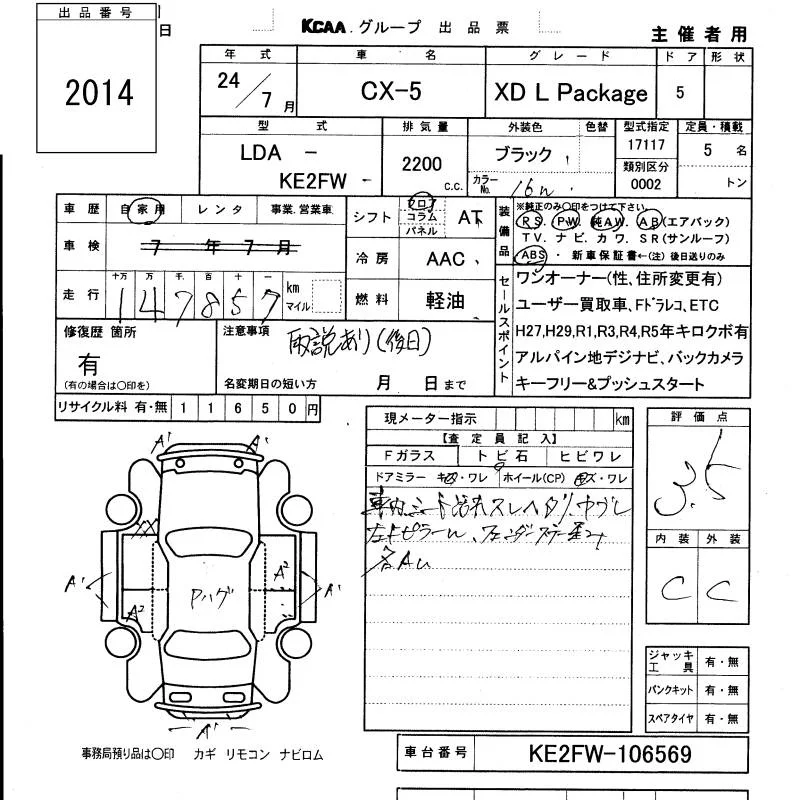 出品番号
日
KCAA グループ 出品票
主催者用
2014
年式 車名 グレード ドア 形状
24/7月 CX-5 XD L Package 5
型式 排気量 外装色 色替 型式指定 定員・積載
LDA - 2200 c.c. ブラック 17117 5 名
KE2FW - カラーNo. 類別区分 0002 トン
車歴 自家用 レンタ 事業.営業車
シフト フロア コラム パネル AT
装備品
※純正のみ〇印をつけて下さい。
RS. PW. 純AW. AB(エアバック)
TV. ナビ. カワ. SR(サンルーフ)
ABS・ 新車保証書←(注) 後日送りのみ
車検 7 年 7 月
冷房 AAC
走行 十万 万 千 百 十 一
147857 km マイル
燃料 軽油
セールスポイント
ワンオーナー(性、住所変更有)
ユーザー買取車、Fドラレコ、ETC
H27,H29,R1,R3,R4,R5年キロクボ有
アルパイン地デジナビ、バックカメラ
キーフリー&プッシュスタート
修復歴 箇所
有
(有の場合は〇印を)
注意事項
取説あり(後日)
名変期日の短い方 月 日まで
リサイクル料 有・無 11650円
現メーター指示 km
【査定員記入】
Fガラス トビ石 ヒビワレ
ドアミラー キズ・ワレ ホイール(CP) キズ・ワレ
車内シート汚れスレヘタリ
各A
評価点
3.5
内装 外装
C C
A1 A1
A1 A2 A1
Pハゲ
A2
A1
ジャッキ工具 有・無
パンクキット 有・無
スペアタイヤ 有・無
事務局預り品は〇印 カギ リモコン ナビロム
車台番号 KE2FW-106569